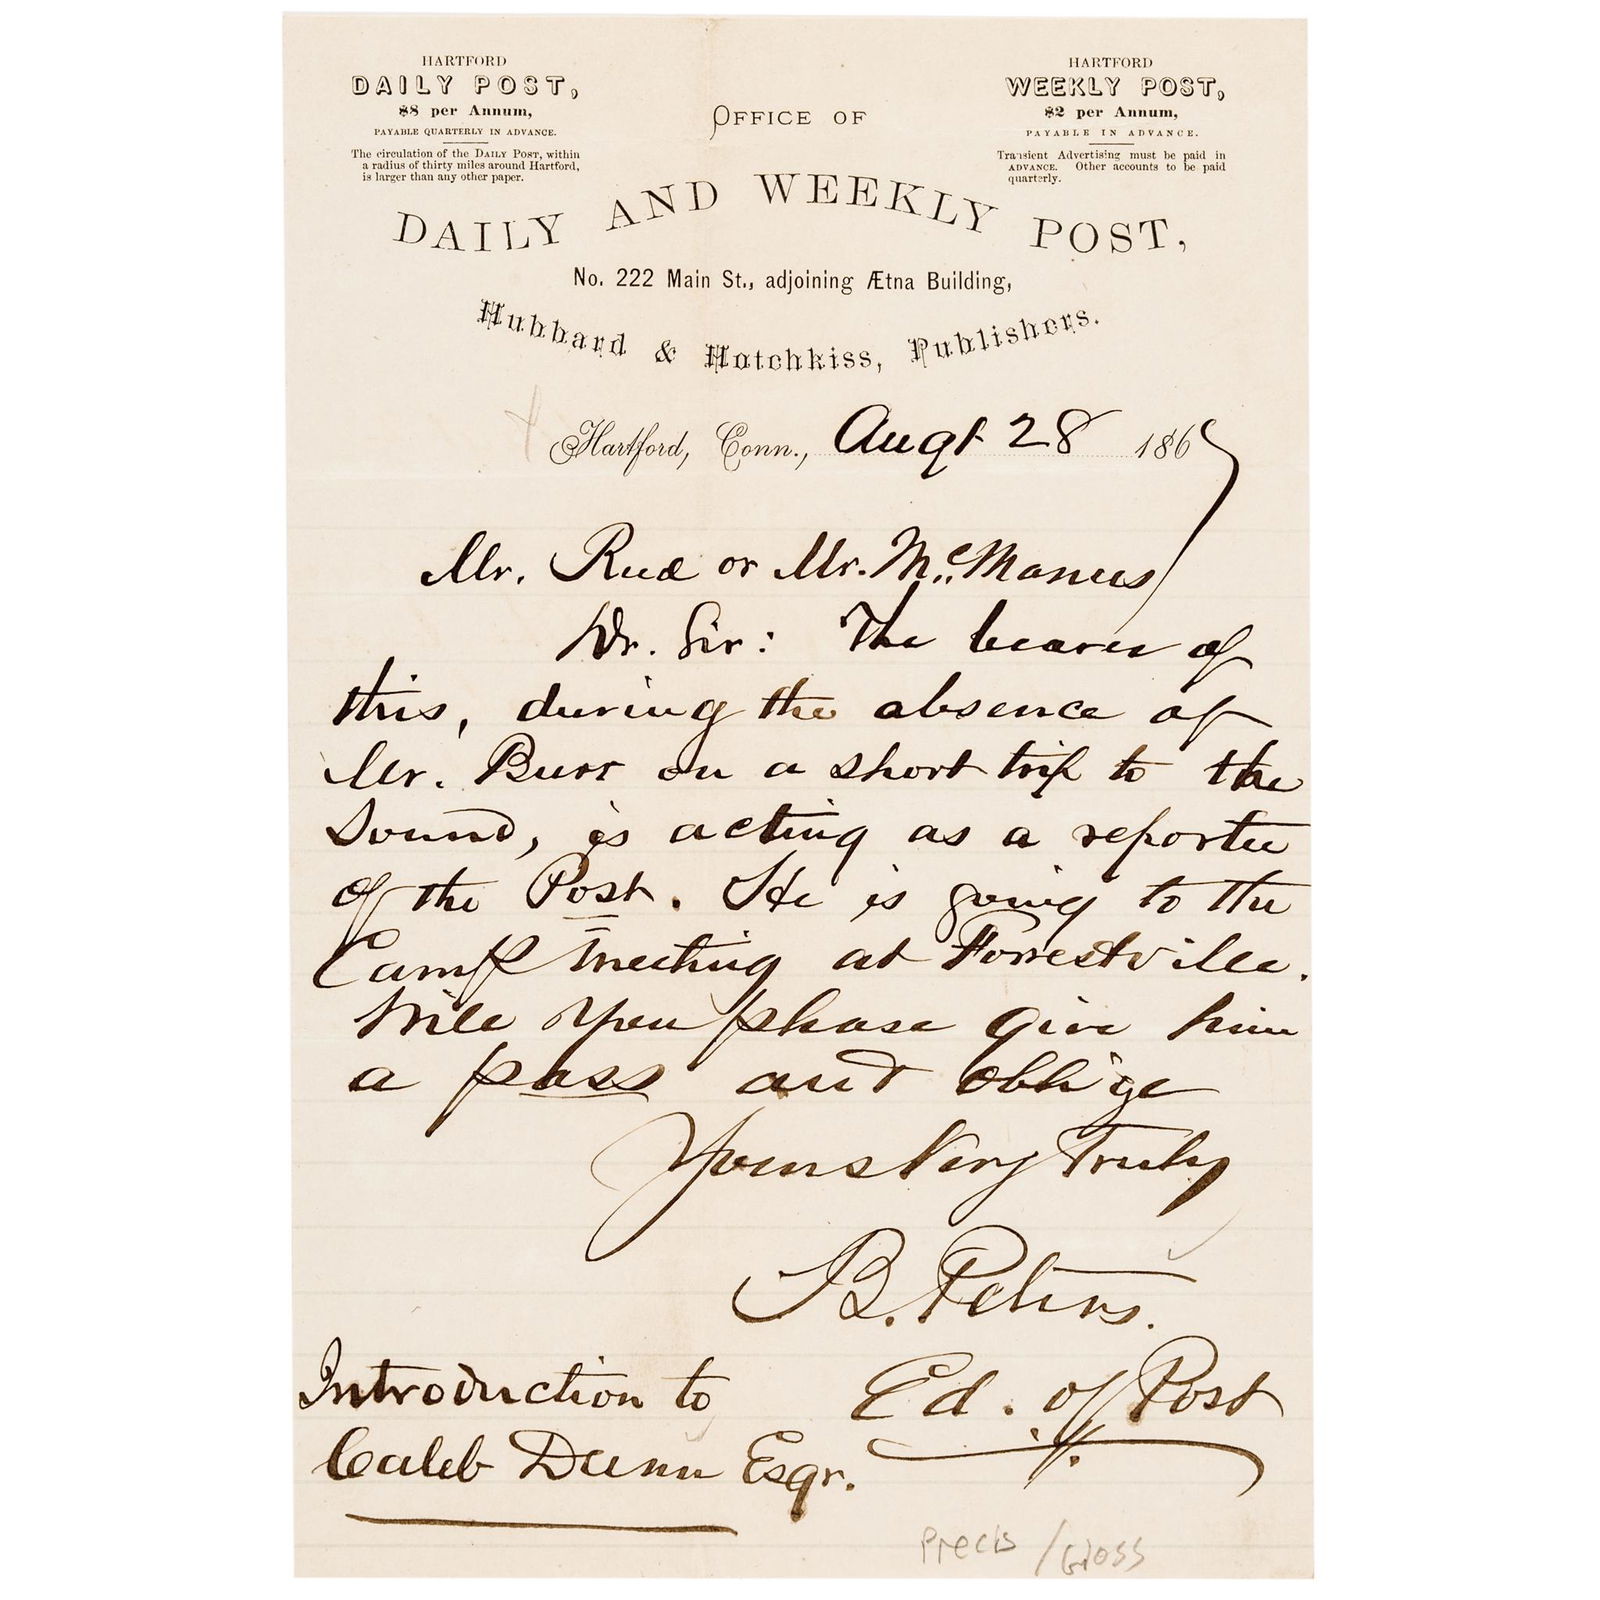 HARTFORD
DAILY POST,
$8 per Annum,
PAYABLE QUARTERLY IN ADVANCE.
The circulation of the DAILY POST, within
a radius of thirty miles around Hartford,
is larger than any other paper.
OFFICE OF
HARTFORD
WEEKLY POST,
$2 per Annum,
PAYABLE IN ADVANCE.
Transient Advertising must be paid in
ADVANCE. Other accounts to be paid
quarterly.
DAILY AND WEEKLY POST,
No. 222 Main St., adjoining Ætna Building,
Hubbard & Hotchkiss, Publishers.
Hartford, Conn., Augt 28 1867
Mr. Rud or Mr. McManus
Dr. Sir: The bearer of
this, during the absence of
Mr. Burr on a short trip to the
Sound, is acting as a reporter
of the Post. He is going to the
Camp meeting at Forrestville.
Will you please give him
a pass and oblige
Yours Very Truly
B. Peters.
Ed. of Post
Introduction to
Caleb Dunn Esqr.